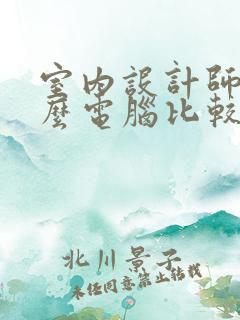 室內設計師
麼電腦比較
北川景子
未经同意禁止转载